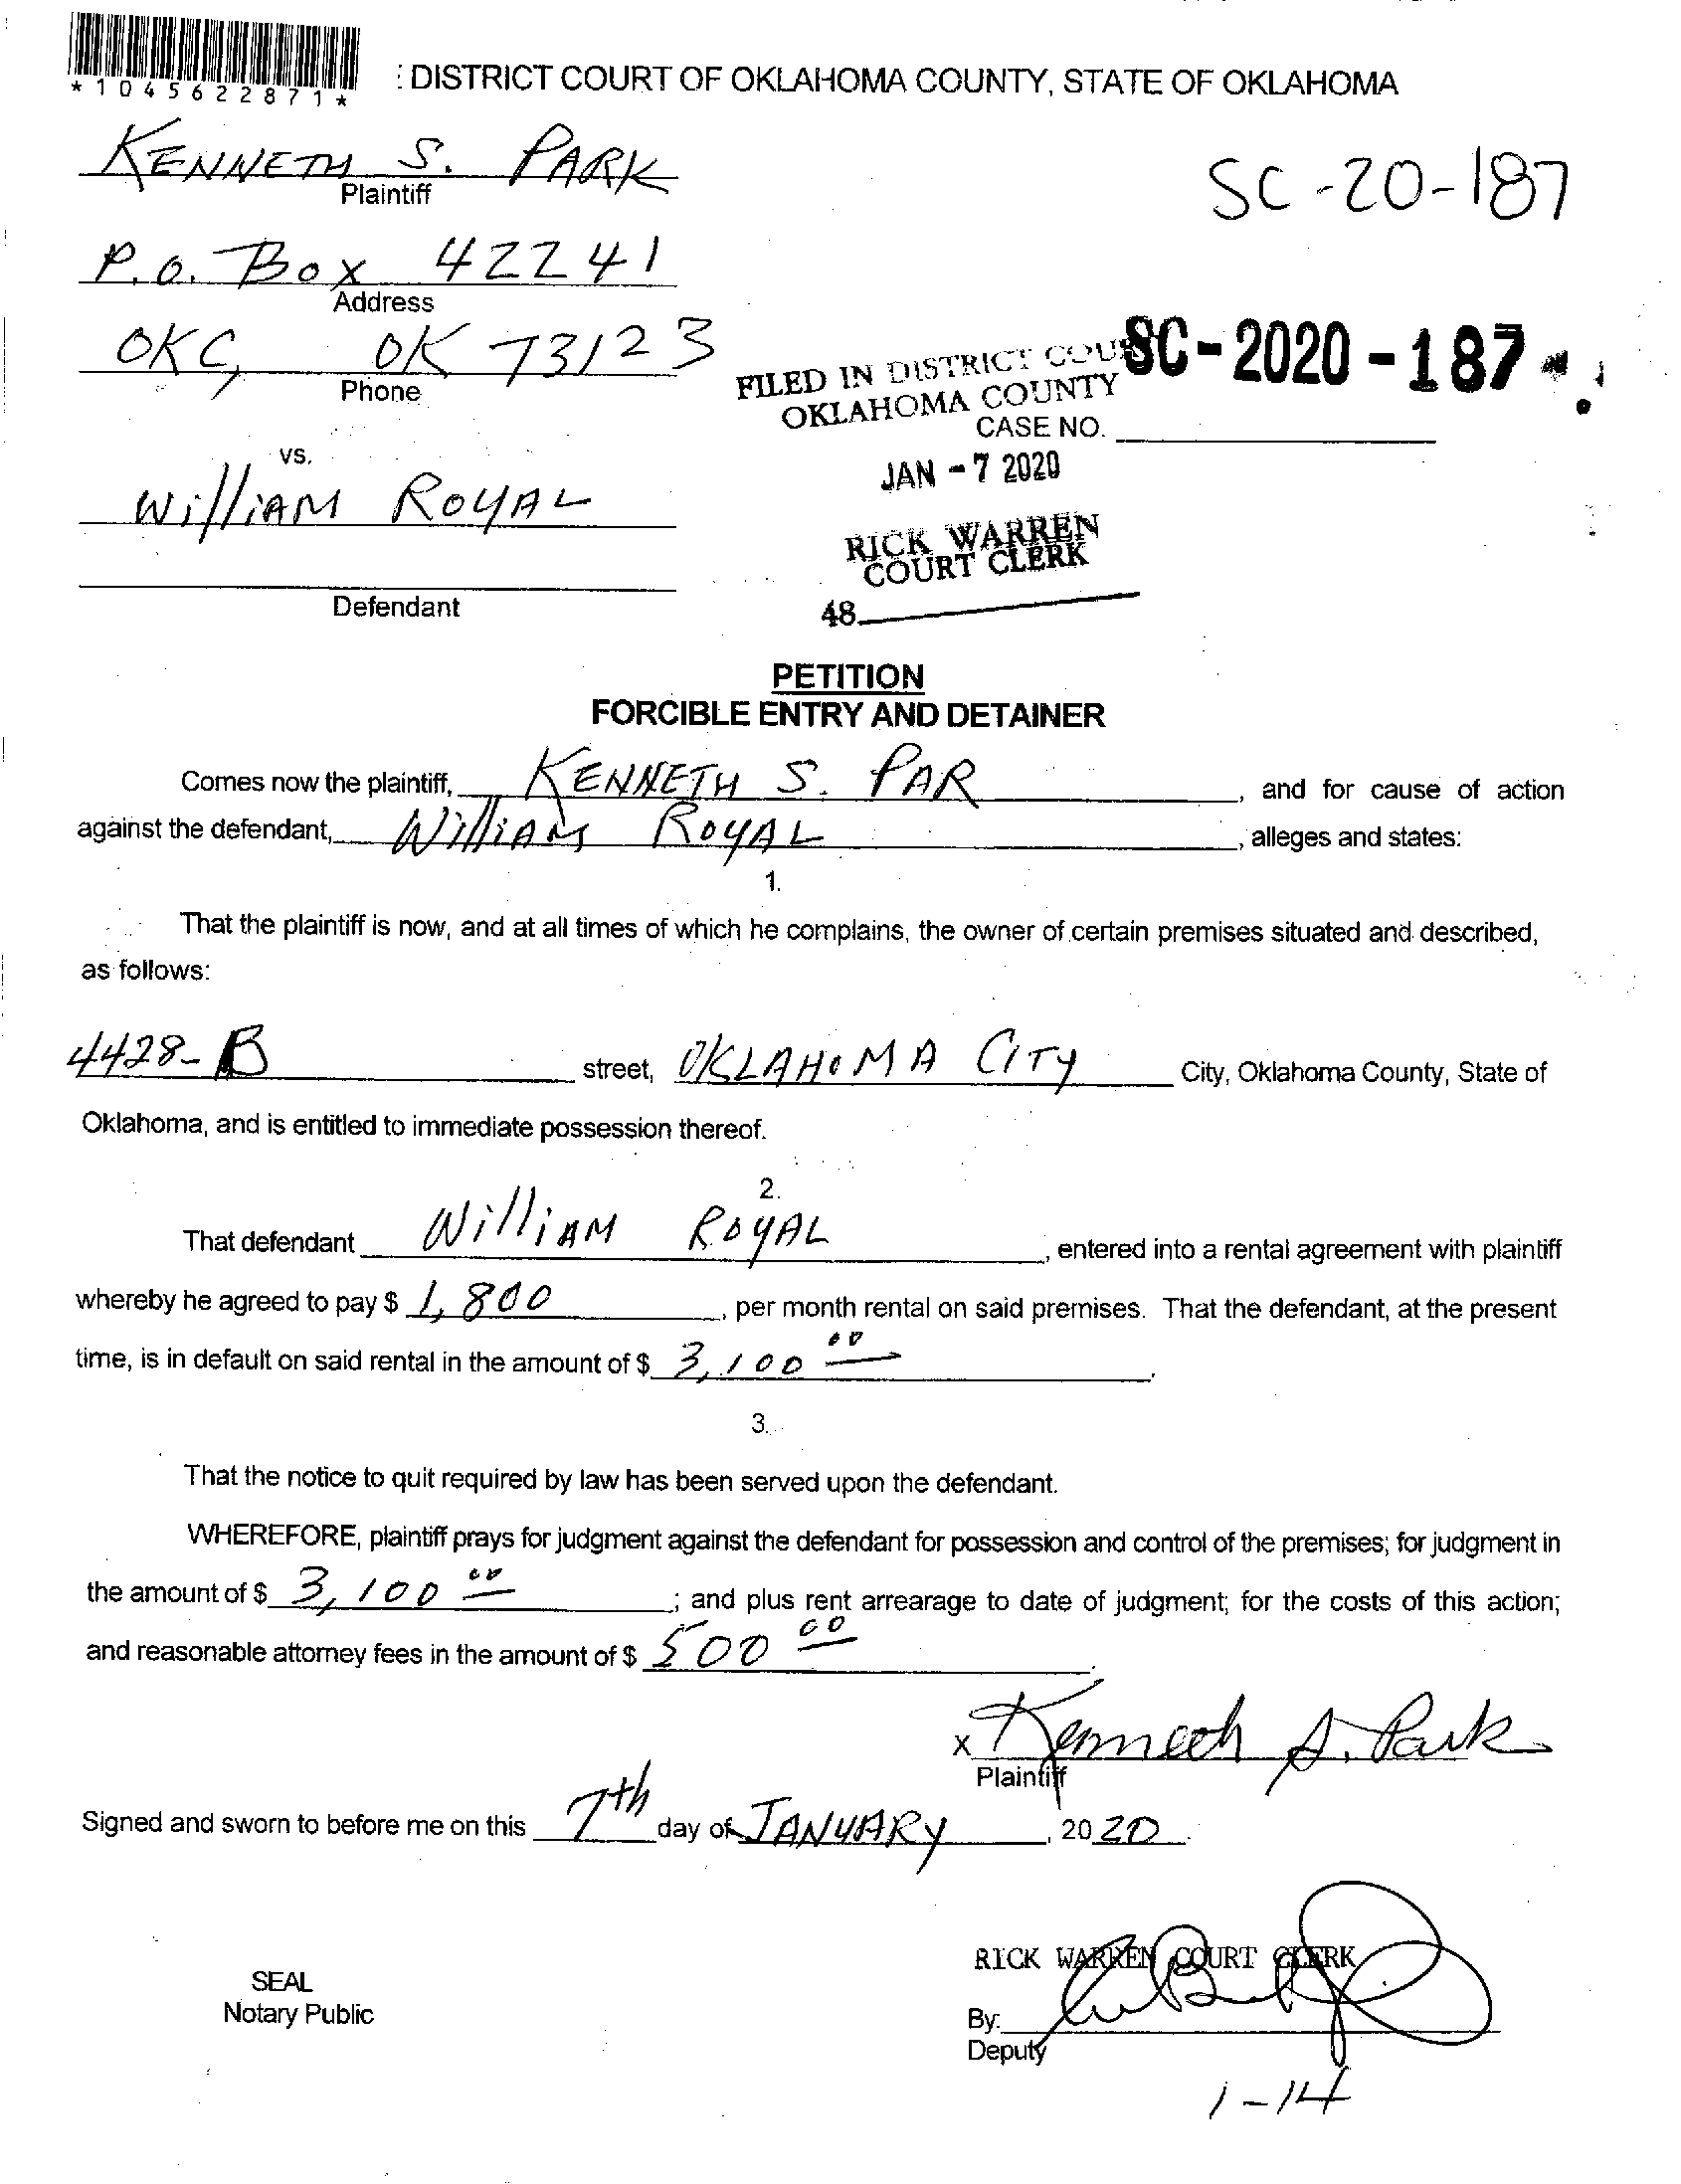 *1045622871*
: DISTRICT COURT OF OKLAHOMA COUNTY, STATE OF OKLAHOMA
KENNETH S. PARK
Plaintiff
SC-20-187
P.O. Box 42241
Address
OKC, OK 73123
Phone
SC-2020-187
FILED IN DISTRICT COU
OKLAHOMA COUNTY
CASE NO.
vs.
JAN -7 2020
WilliAM ROYAL
RICK WARREN
COURT CLERK
Defendant
48
PETITION
FORCIBLE ENTRY AND DETAINER
Comes now the plaintiff, KENNETH S. PAR, and for cause of action
against the defendant, WilliAM ROYAL, alleges and states:
1.
That the plaintiff is now, and at all times of which he complains, the owner of certain premises situated and described,
as follows:
4428-B street, OKLAHOMA CITY City, Oklahoma County, State of
Oklahoma, and is entitled to immediate possession thereof.
2.
That defendant WilliAM ROYAL, entered into a rental agreement with plaintiff
whereby he agreed to pay $ 1,800, per month rental on said premises. That the defendant, at the present
time, is in default on said rental in the amount of $ 3,100 00.
3.
That the notice to quit required by law has been served upon the defendant.
WHEREFORE, plaintiff prays for judgment against the defendant for possession and control of the premises; for judgment in
the amount of $ 3,100 00; and plus rent arrearage to date of judgment; for the costs of this action;
and reasonable attorney fees in the amount of $ 500 00.
x Kenneth S. Park
Plaintiff
Signed and sworn to before me on this 7th day of JANUARY, 2020.
RICK WARREN COURT CLERK
SEAL
Notary Public
By:
Deputy
1-14